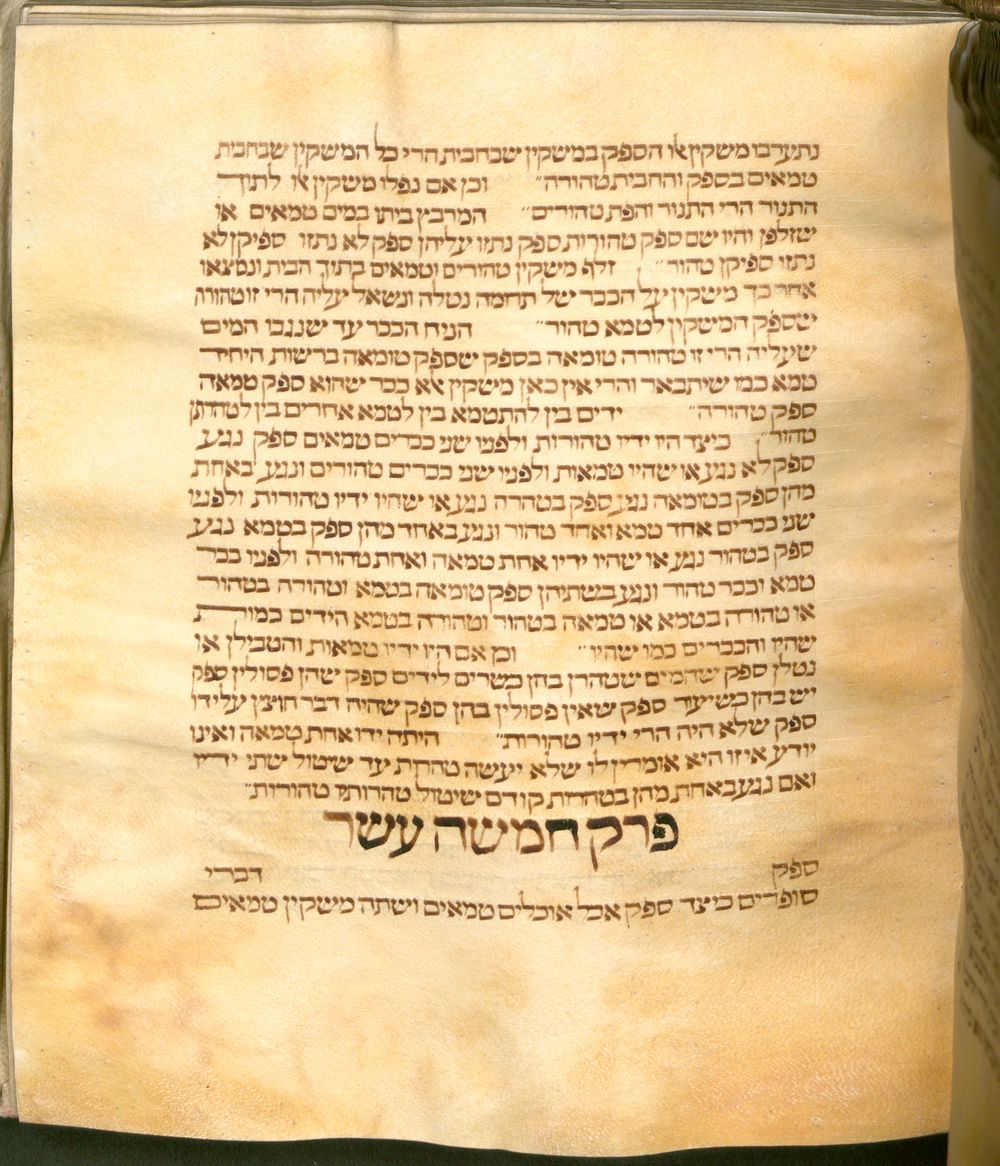 נתערבו משקין אלו הספק במשקין שבחבית הרי כל המשקין שבחבית
טמאים בספק והחבית טהורה״ וכן אם נפלו משקין אלו לתוך
התנור הרי התנור והפת טהורים״ המרבץ ביתו במים טמאים או
שזלפן והיו שם ספק טהורות ספק נתזו עליהן ספק לא נתזו ספיקן לא
נתזו ספיקן טהור״ זלף משקין טהורים וטמאים בתוך הבית ונמצאו
אחר כך משקין על הככר של תרומה נטלה ונשאל עליה הרי זו טהורה
שספק המשקין לטמא טהור״ הניח הככר עד שנגבו המים
שעליה הרי זו טהורה טומאה בספק שספק טומאה ברשות היחיד
טמא כמו שיתבאר והרי אין כאן משקין אלא ככר שהוא ספק טמאה
ספק טהורה״ ידים בין להתטמא בין לטמא אחרים בין לטהרתן
טהור״ כיצד היו ידיו טהורות ולפניו שני ככרים טמאים ספק נגע
ספק לא נגע או שהיו טמאות ולפניו שני ככרים טהורים ונגע באחת
מהן ספק בטומאה נגע ספק בטהרה נגע או שהיו ידיו טהורות ולפניו
שני ככרים אחד טמא ואחד טהור ונגע באחד מהן ספק בטמא נגע
ספק בטהור נגע או שהיו ידיו אחת טמאה ואחת טהורה ולפניו ככר
טמא וככר טהור ונגע בשתיהן ספק טומאה בטמא וטהורה בטהור
או טהורה בטמא או טמאה בטהור וטהורה בטמא הידים כמות
שהיו והככרים כמו שהיו״ וכן אם היו ידיו טמאות והטבילן או
נטלן ספק שהמים שטהרן בהן כשרים לידים ספק שהן פסולין ספק
יש בהן כשיעור ספק שאין פסולין בהן ספק שהיה דבר חוצץ על ידו
ספק שלא היה הרי ידיו טהורות״ היתה ידו אחת טמאה ואינו
יודע איזו היא אומרין לו שלא יעשה טהרות עד שיטול שתי ידיו
ואם נגע באחת מהן בטהרות קודם שיטול טהרותיו טהורות״
פרק חמשה עשר
ספק דברי
סופרים כיצד ספק אכל אוכלים טמאים ושתה משקין טמאים